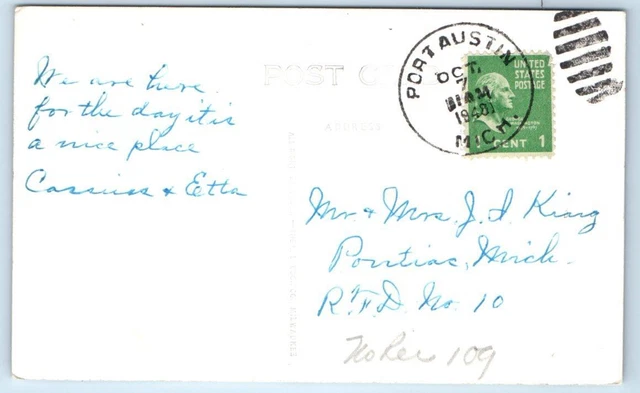 We are here
for the day it is
a nice place
Cassius & Etta
POST
ADDRESS
PORT AUSTIN
OCT
7
11 AM
1940
MICH
UNITED
STATES
POSTAGE
CENT 1
Mr & Mrs. J. I. King
Pontiac, Mich.
R.F.D. No. 10
109